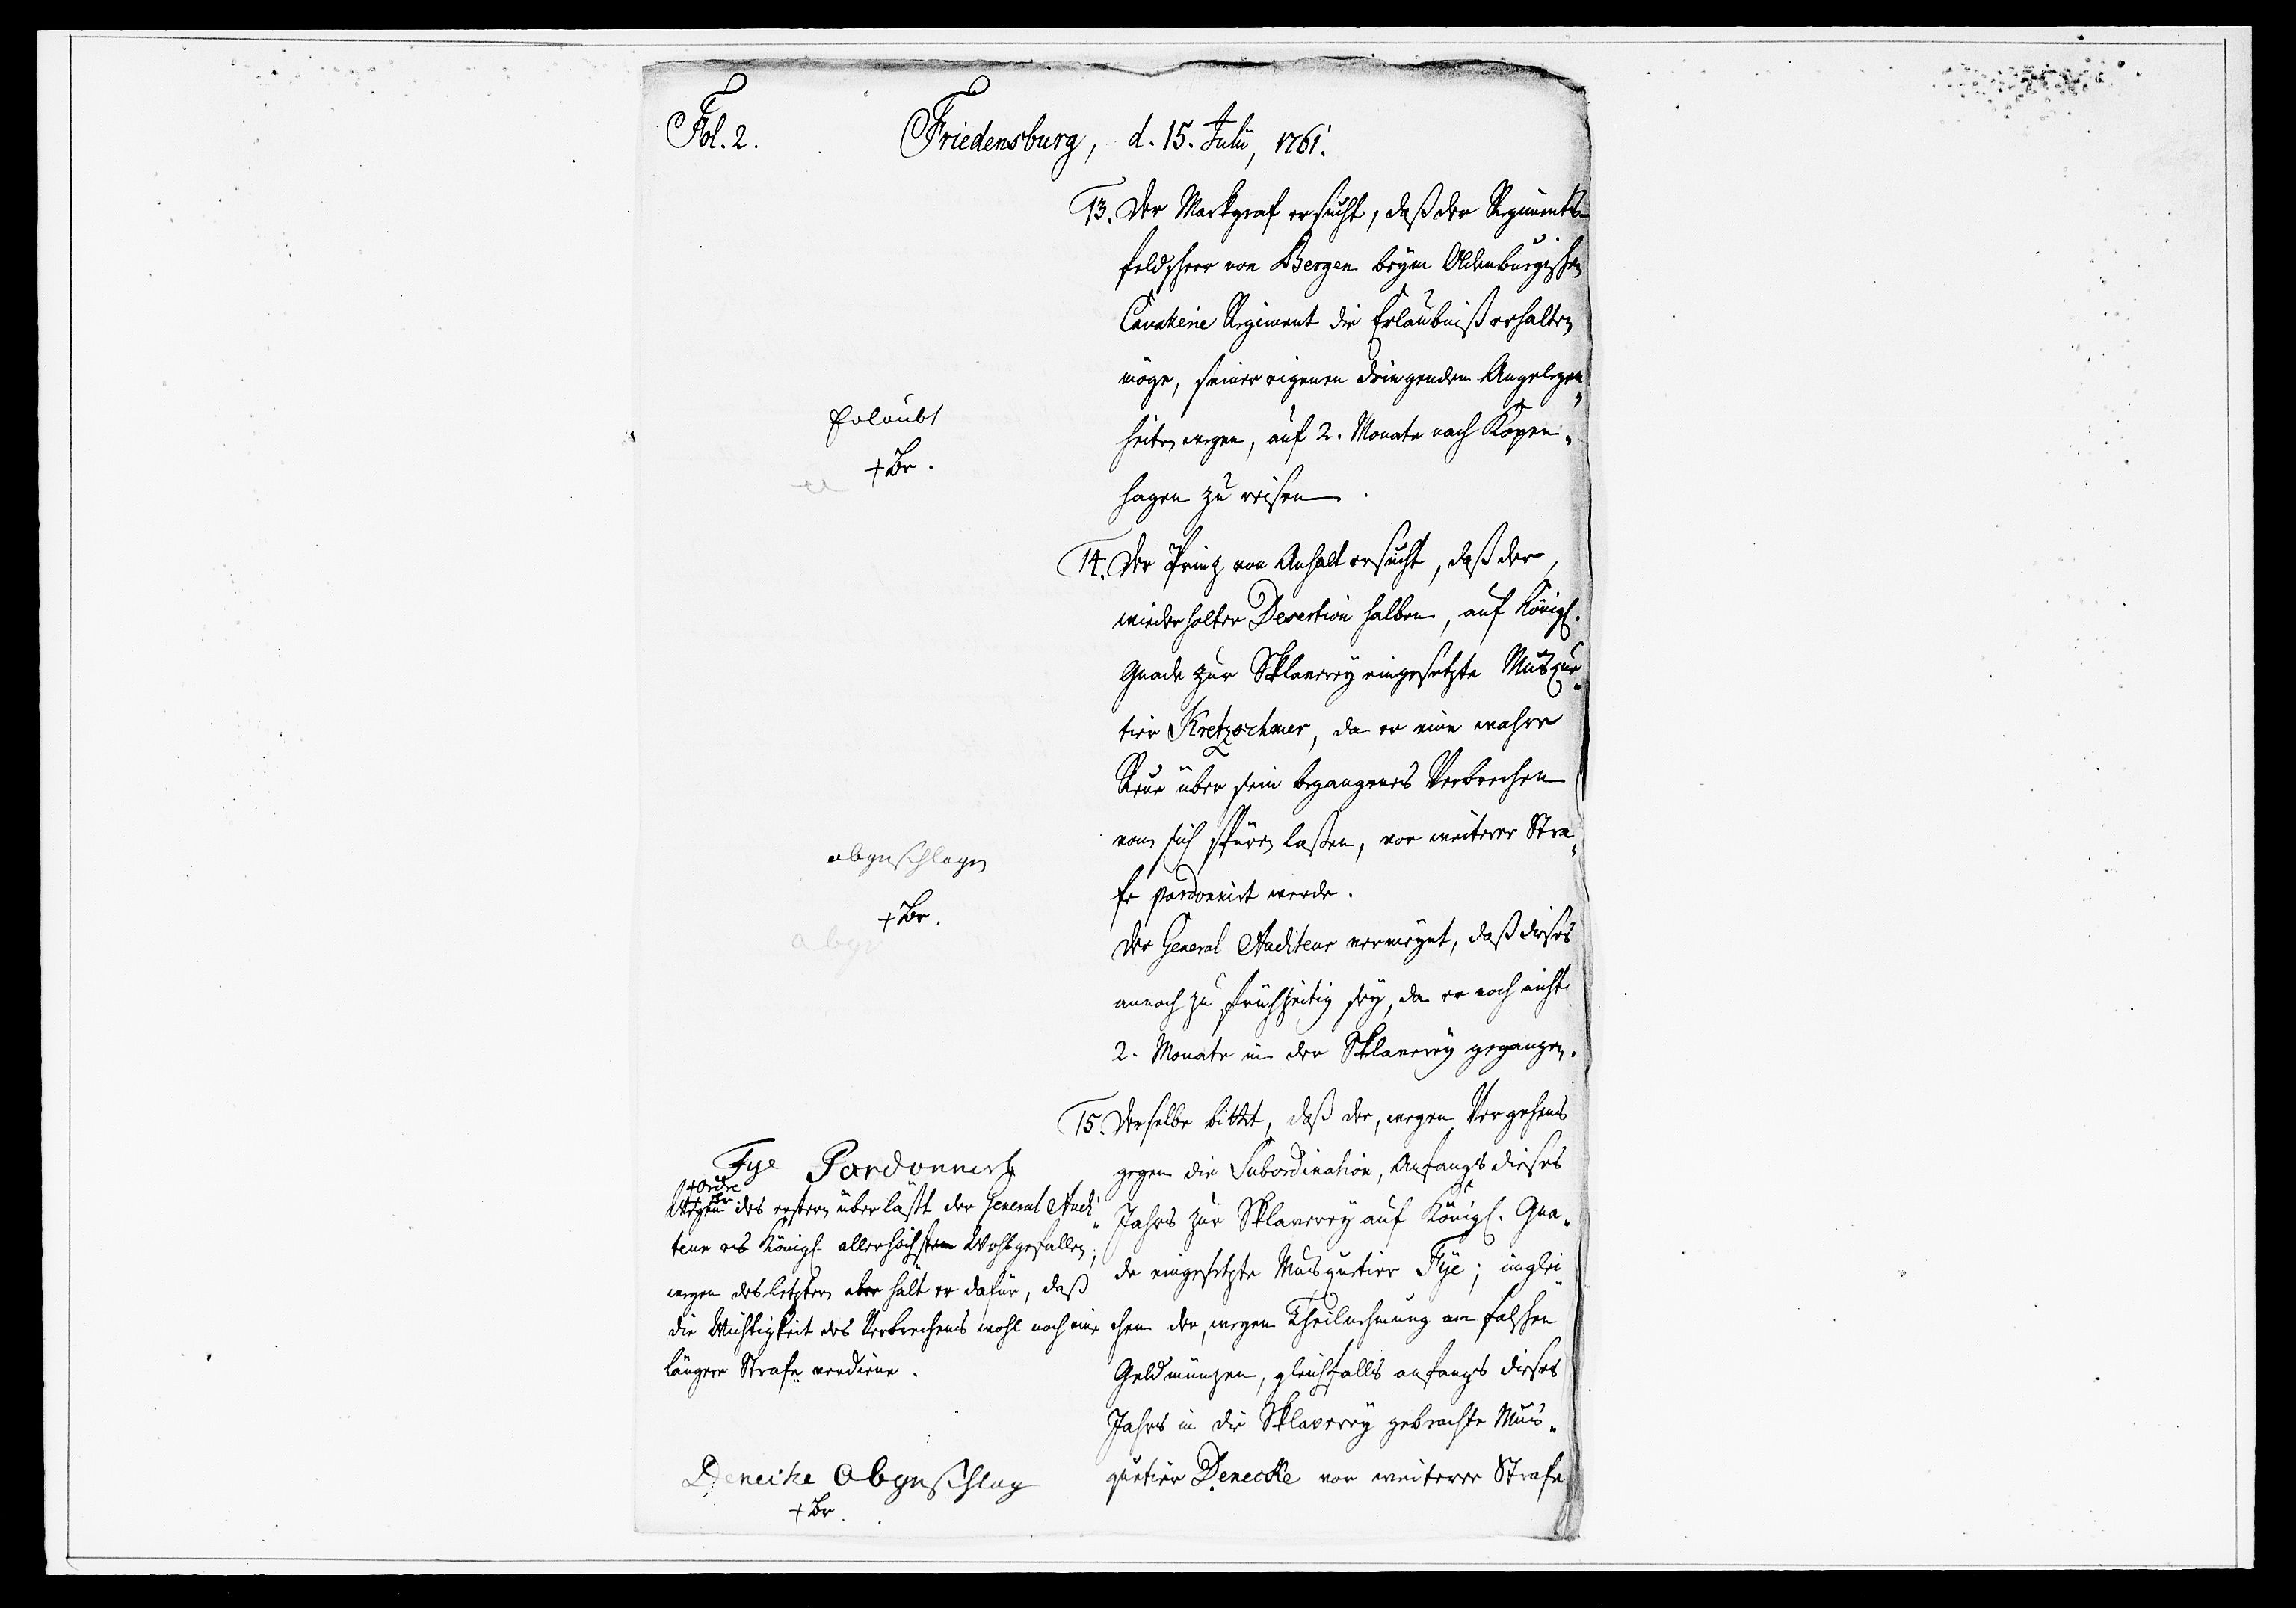 Fol. 2.
Friedensburg, d. 15. Julii, 1761.
13. Der Markgraf ersucht, daß der Regiments-
feldscheer von Bergen beym Oldenburgischen
Cavallerie Regiment die Erlaubniß erhalten
möge, seiner eigenen dringenden Angelegen„
heiten wegen, auf 2. Monate nach Kopen„
hagen zu reisen.
Erlaubt
+ Br.
14. Der Prinz von Anhalt ersucht, daß der,
wiederholter Desertion halben, auf Königl.
Gnade zur Sklaverey eingesetzte Musque„
tier Kretzschmer, da er eine wahre
Reue über sein begangenes Verbrechen
von sich spüren laßen, vor weiterer Stra„
fe pardonnirt werde.
Der General Auditeur vermeynt, daß dieses
annoch zu frühzeitig sey, da er noch nicht
2. Monate in der Sklaverey gegangen.
abgeschlagen
+ Br.
abge
15. Derselbe bittet, daß der, wegen Vergehens
gegen die Subordination, Anfangs dieses
Jahrs zur Sklaverey auf Königl. Gna„
de eingesetzte Musquetier Fÿe; imglei„
chen der, wegen Theilnehmung am falschen
Geldmünzen, gleichfalls anfangs dieses
Jahrs in die Sklaverey gebrachte Mus„
quetier Denecke vor weiterer Strafe
Fye Pardonnirt
+ Ordre
+ Br.
Wegen des erstern überläßt der General Audi„
teur es Königl. allerhöchstem Wohlgefallen;
wegen des letztern aber hält er dafür, daß
die Wichtigkeit des Verbrechens wohl noch eine
längere Strafe verdiene.
Deneike abgeschlag
+ Br.